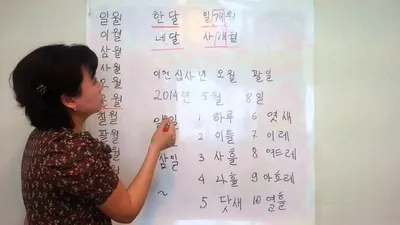 일월
이월
삼월
사월
월
월
칠월
팔월
월
월
한달 일개월
네달 사개월
이천 십사 년 오월 팔일
2014년 5월 8일
일일 1 하루 6 엿새
2 이틀 7 이레
삼일 3 사흘 8 여드레
4 나흘 9 아흐레
~ 5 닷새 10 열흘